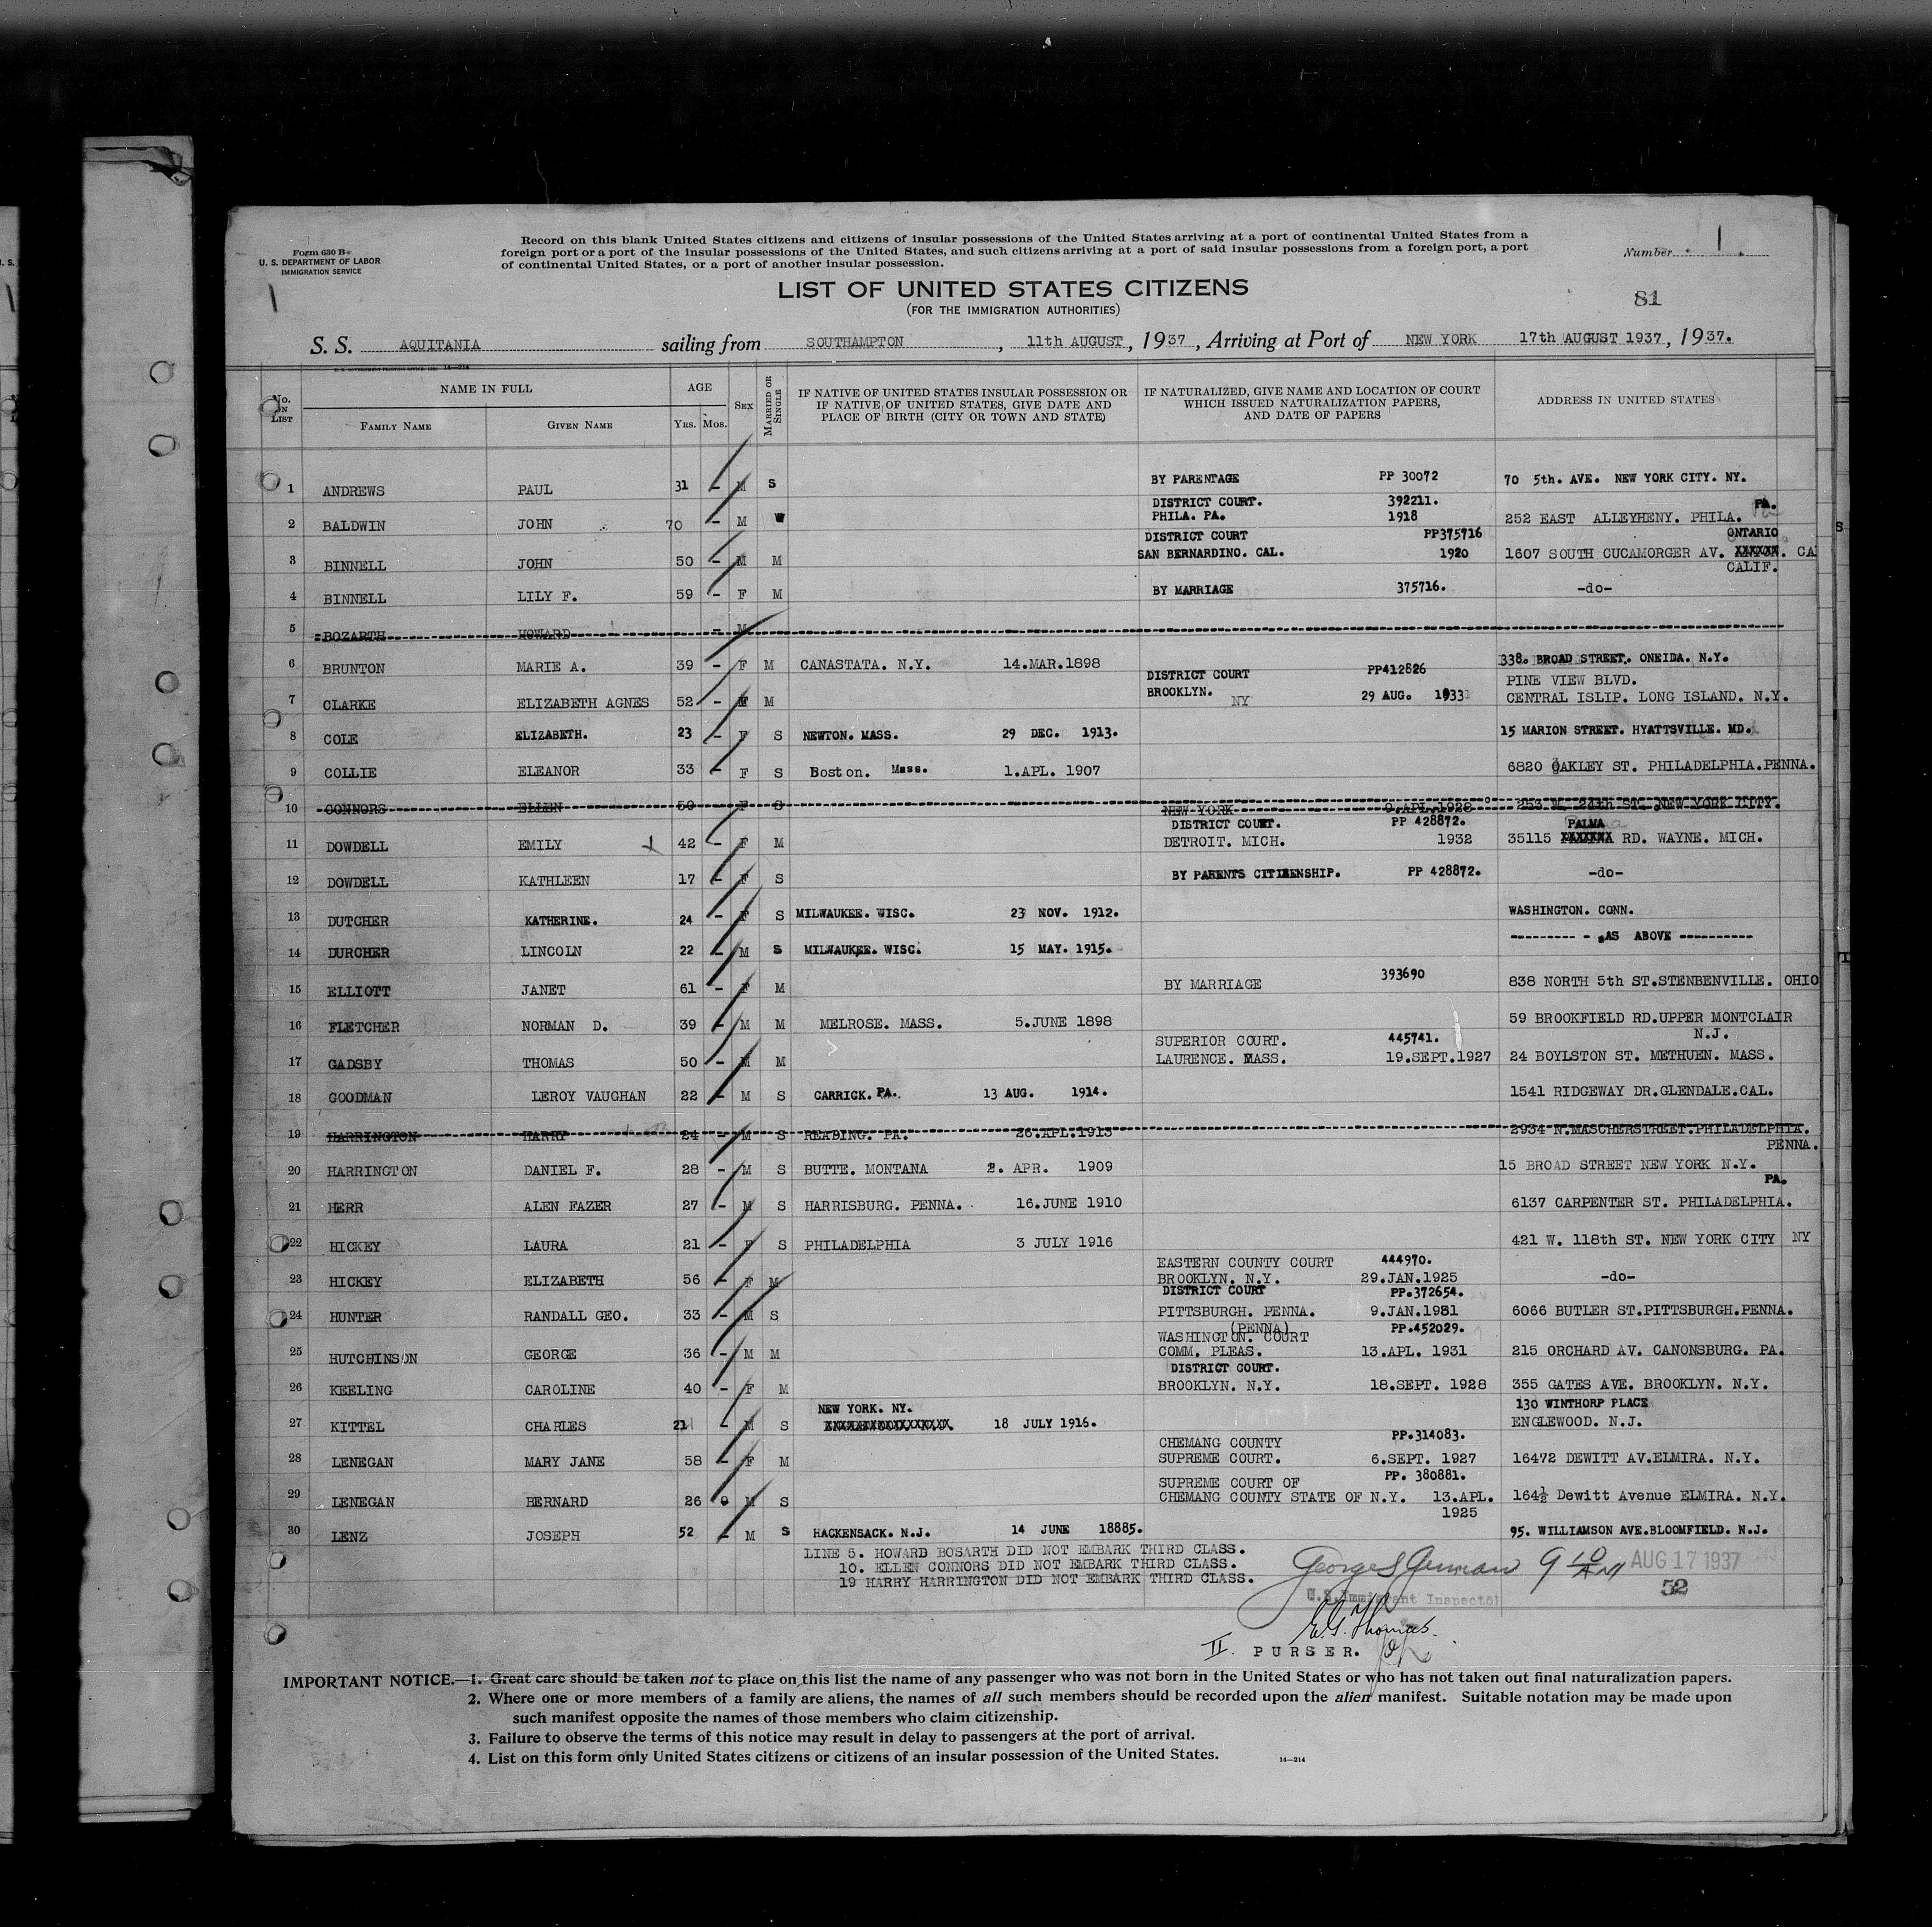 Form 630 B
U. S. DEPARTMENT OF LABOR
IMMIGRATION SERVICE
Record on this blank United States citizens and citizens of insular possessions of the United States arriving at a port of continental United States from a
foreign port or a port of the insular possessions of the United States, and such citizens arriving at a port of said insular possessions from a foreign port, a port
of continental United States, or a port of another insular possession.
Number 1
81
LIST OF UNITED STATES CITIZENS
(FOR THE IMMIGRATION AUTHORITIES)
S. S. AQUITANIA sailing from SOUTHAMPTON, 11th AUGUST, 1937, Arriving at Port of NEW YORK 17th AUGUST 1937, 1937.
14—214
No. ON LIST
NAME IN FULL
FAMILY NAME
GIVEN NAME
AGE
YRS. MOS.
SEX
MARRIED OR SINGLE
IF NATIVE OF UNITED STATES INSULAR POSSESSION OR
IF NATIVE OF UNITED STATES, GIVE DATE AND
PLACE OF BIRTH (CITY OR TOWN AND STATE)
IF NATURALIZED, GIVE NAME AND LOCATION OF COURT
WHICH ISSUED NATURALIZATION PAPERS,
AND DATE OF PAPERS
ADDRESS IN UNITED STATES
1 ANDREWS PAUL 31 - M S BY PARENTAGE PP 30072 70 5th. AVE. NEW YORK CITY. NY.
DISTRICT COURT. 392211. PA.
2 BALDWIN JOHN 70 - M W PHILA. PA. 1918 252 EAST ALLEYHENY. PHILA.
DISTRICT COURT PP375716 ONTARIO
3 BINNELL JOHN 50 - M M SAN BERNARDINO. CAL. 1920 1607 SOUTH CUCAMORGER AV. XXXXXX. CA
CALIF.
4 BINNELL LILY F. 59 - F M BY MARRIAGE 375716. -do-
5 BOZARTH HOWARD - M
6 BRUNTON MARIE A. 39 - F M CANASTATA. N.Y. 14.MAR.1898 338. BROAD STREET. ONEIDA. N.Y.
DISTRICT COURT PP412826 PINE VIEW BLVD.
7 CLARKE ELIZABETH AGNES 52 - F M BROOKLYN. NY 29 AUG. 1933 CENTRAL ISLIP. LONG ISLAND. N.Y.
8 COLE ELIZABETH. 23 - F S NEWTON. MASS. 29 DEC. 1913. 15 MARION STREET. HYATTSVILLE. MD.
9 COLLIE ELEANOR 33 - F S Boston. Mass. 1.APL. 1907 6820 OAKLEY ST. PHILADELPHIA.PENNA.
10 CONNORS ELLEN 50 - F S NEW YORK 9.APL.1928 253 W. 24th ST. NEW YORK CITY.
DISTRICT COURT. PP 428872. PALMA
11 DOWDELL EMILY 42 - F M DETROIT. MICH. 1932 35115 XXXXXXX RD. WAYNE. MICH.
12 DOWDELL KATHLEEN 17 - F S BY PARENTS CITIZENSHIP. PP 428872. -do-
13 DUTCHER KATHERINE. 24 - F S MILWAUKEE. WISC. 23 NOV. 1912. WASHINGTON. CONN.
14 DURCHER LINCOLN 22 - M S MILWAUKEE. WISC. 15 MAY. 1915. --------- - AS ABOVE ----------
15 ELLIOTT JANET 61 - F M BY MARRIAGE 393690 838 NORTH 5th ST.STENBENVILLE. OHIO
16 FLETCHER NORMAN D. 39 - M M MELROSE. MASS. 5.JUNE 1898 59 BROOKFIELD RD.UPPER MONTCLAIR
N.J.
SUPERIOR COURT. 445741.
17 GADSBY THOMAS 50 - M M LAURENCE. MASS. 19.SEPT.1927 24 BOYLSTON ST. METHUEN. MASS.
18 GOODMAN LEROY VAUGHAN 22 - M S CARRICK. PA. 13 AUG. 1914. 1541 RIDGEWAY DR.GLENDALE.CAL.
19 HARRINGTON HARRY 24 - M S READING. PA. 26.APL.1913 2934 N.MASCHERSTREET.PHILADELPHIA.
PENNA.
20 HARRINGTON DANIEL F. 28 - M S BUTTE. MONTANA 2. APR. 1909 15 BROAD STREET NEW YORK N.Y.
PA.
21 HERR ALEN FAZER 27 - M S HARRISBURG. PENNA. 16.JUNE 1910 6137 CARPENTER ST. PHILADELPHIA.
22 HICKEY LAURA 21 - F S PHILADELPHIA 3 JULY 1916 421 W. 118th ST. NEW YORK CITY NY
EASTERN COUNTY COURT 444970.
23 HICKEY ELIZABETH 56 - F M BROOKLYN. N.Y. 29.JAN.1925 -do-
DISTRICT COURT PP.372654.
24 HUNTER RANDALL GEO. 33 - M S PITTSBURGH. PENNA. 9.JAN.1931 6066 BUTLER ST.PITTSBURGH.PENNA.
(PENNA) PP.452029.
WASHINGTON. COURT
25 HUTCHINSON GEORGE 36 - M M COMM. PLEAS. 13.APL. 1931 215 ORCHARD AV. CANONSBURG. PA.
DISTRICT COURT.
26 KEELING CAROLINE 40 - F M BROOKLYN. N.Y. 18.SEPT. 1928 355 GATES AVE. BROOKLYN. N.Y.
NEW YORK. NY. 130 WINTHORP PLACE
27 KITTEL CHARLES 21 - M S 18 JULY 1916. ENGLEWOOD. N.J.
CHEMANG COUNTY PP.314083.
28 LENEGAN MARY JANE 58 - F M SUPREME COURT. 6.SEPT. 1927 16472 DEWITT AV.ELMIRA. N.Y.
SUPREME COURT OF PP. 380881.
29 LENEGAN BERNARD 26 M S CHEMANG COUNTY STATE OF N.Y. 13.APL. 164½ Dewitt Avenue ELMIRA. N.Y.
1925
30 LENZ JOSEPH 52 - M S HACKENSACK. N.J. 14 JUNE 18885. 95. WILLIAMSON AVE.BLOOMFIELD. N.J.
LINE 5. HOWARD BOSARTH DID NOT EMBARK THIRD CLASS.
10. ELLEN CONNORS DID NOT EMBARK THIRD CLASS.
19 HARRY HARRINGTON DID NOT EMBARK THIRD CLASS.
AUG 17 1937
52
U.S. Immigrant Inspector
E.G. Thomas.
II. PURSER.
IMPORTANT NOTICE.—1. Great care should be taken not to place on this list the name of any passenger who was not born in the United States or who has not taken out final naturalization papers.
2. Where one or more members of a family are aliens, the names of all such members should be recorded upon the alien manifest. Suitable notation may be made upon
such manifest opposite the names of those members who claim citizenship.
3. Failure to observe the terms of this notice may result in delay to passengers at the port of arrival.
4. List on this form only United States citizens or citizens of an insular possession of the United States.
14—214